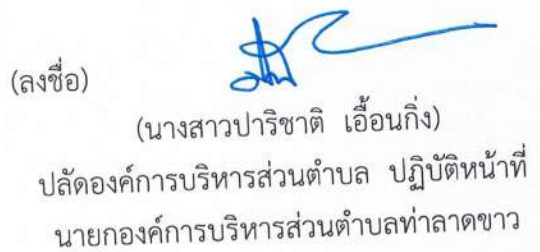 (ลงชื่อ)
(นางสาวปาริชาติ เอื้อนกิ่ง)
ปลัดองค์การบริหารส่วนตำบล ปฏิบัติหน้าที่
นายกองค์การบริหารส่วนตำบลท่าลาดขาว